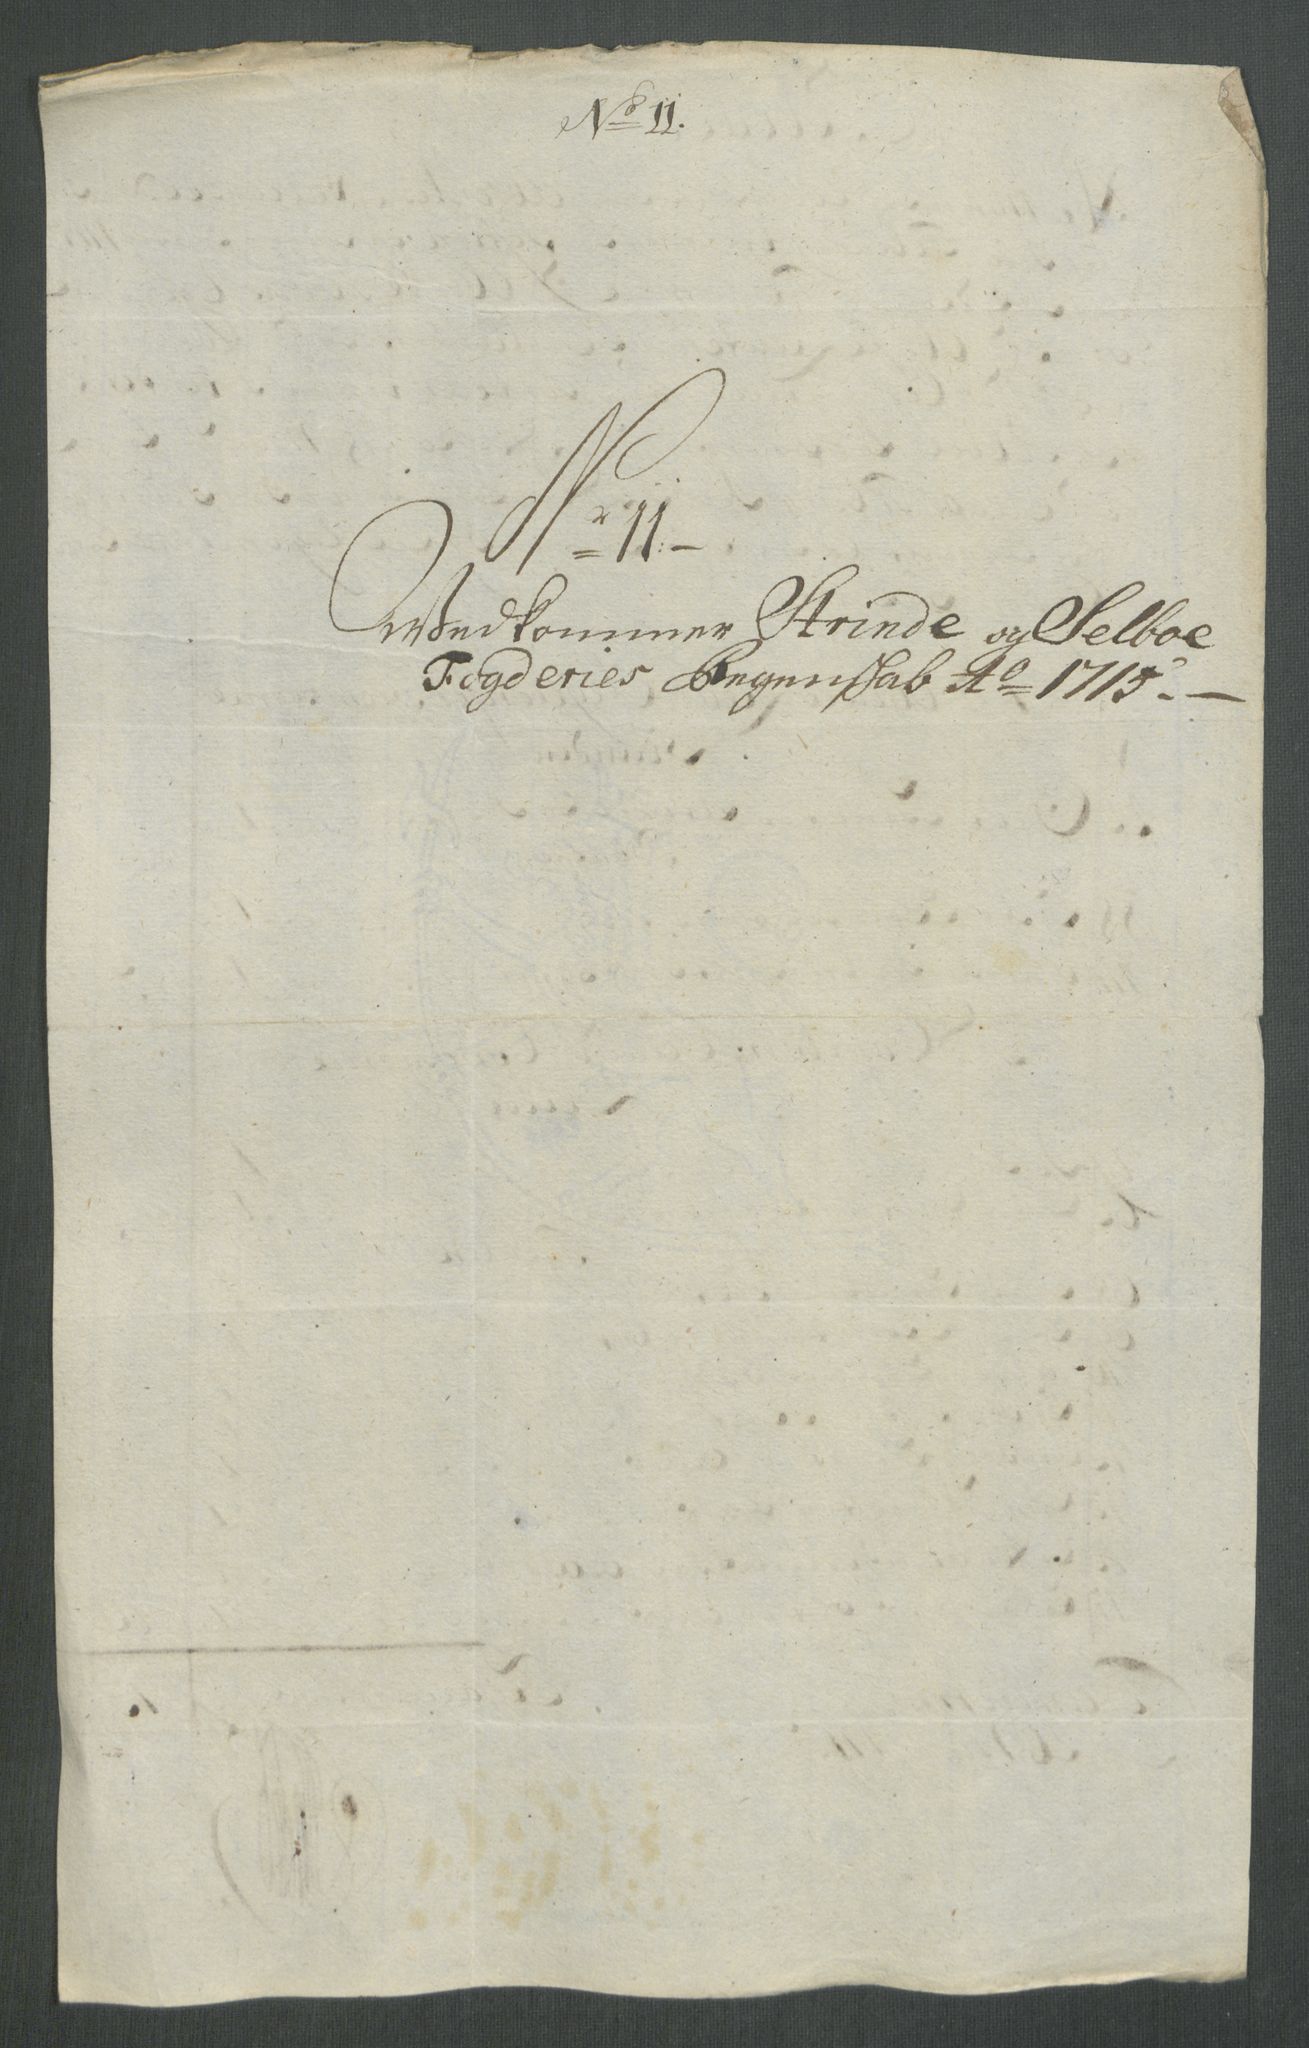 No 11.
Nr 11.-
Vedkommer Strinde og Selboe
Fogderies Regenskab Ao 1715.-